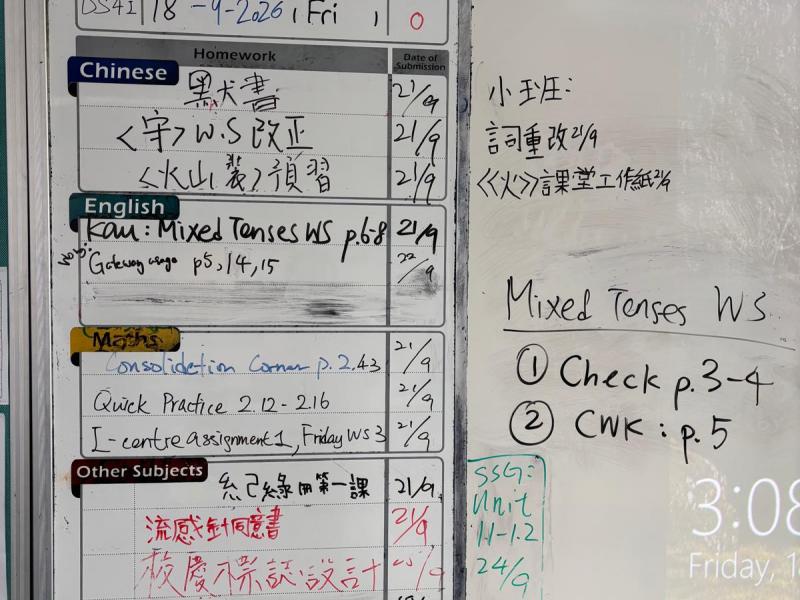 18-9-2026, Fri, 0
Homework
Date of Submission
Chinese
黑犬書 21/9
〈守〉W.S改正 21/9
〈火山裝〉預習 21/9
English
Kau: Mixed Tenses WS p.6-8 21/9
Gateway usage p5,14,15 22/9
Maths
Consolidation Corner p.2.43 21/9
Quick Practice 2.12-2.16 21/9
I-centre assignment 1, Friday WS 3 21/9
Other Subjects
第一課 21/9
流感針同意書 21/9
校慶標誌設計
小班:
詞重改 21/9
《火》課堂工作紙 21/9
Mixed Tenses WS
① Check p.3-4
② CWK: p.5
SSG:
Unit
1.1-1.2
24/9
3:08
Friday, 1